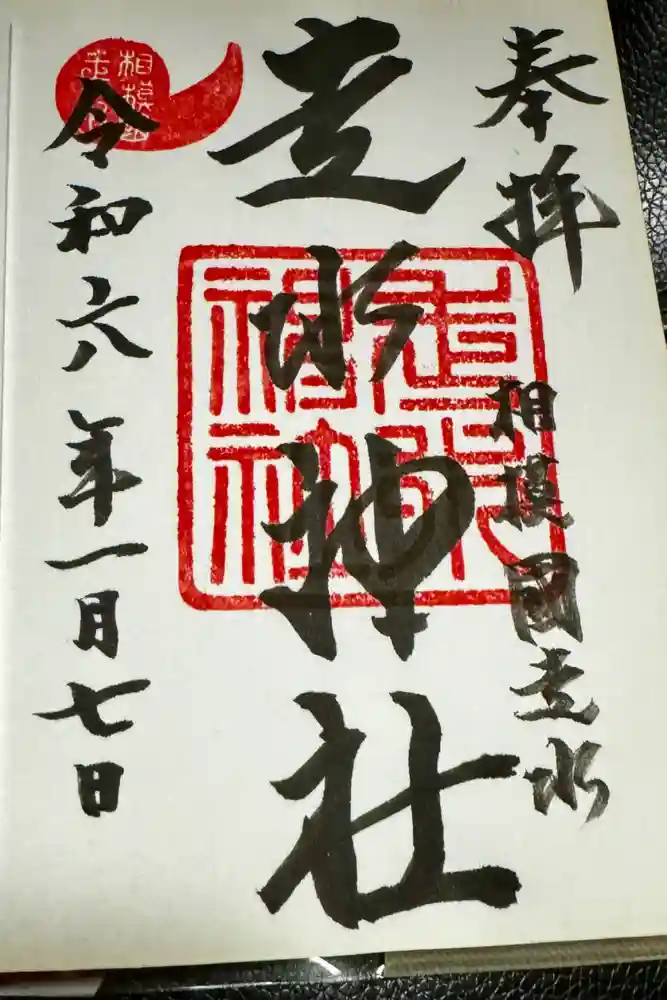 奉拝
相模國走水
走水神社
令和六年一月七日
走水神社
相模國
走水